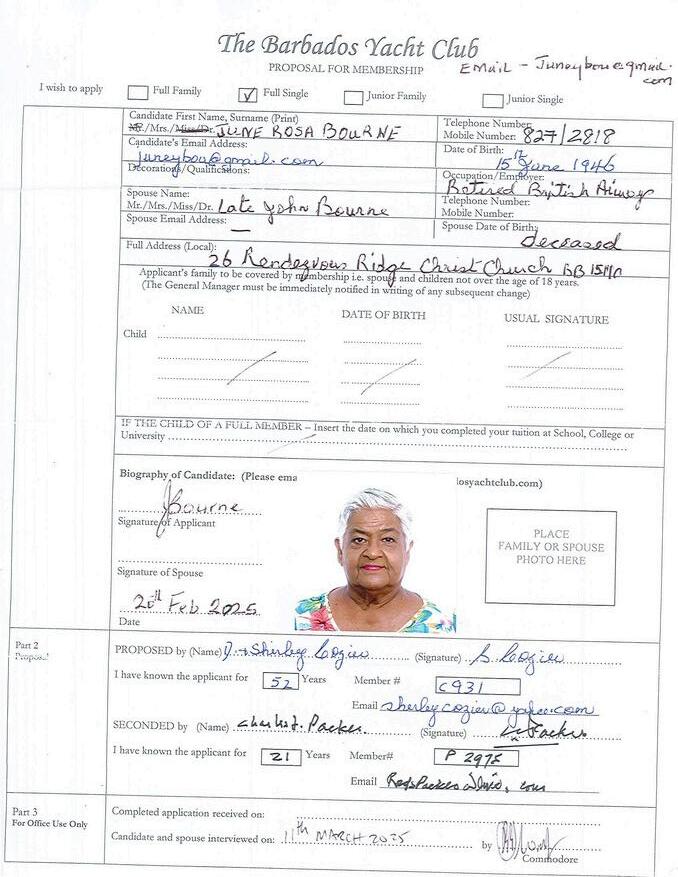 The Barbados Yacht Club
PROPOSAL FOR MEMBERSHIP
Email - Juneybou@gmail.
com
I wish to apply
Full Family
Full Single
Junior Family
Junior Single
Candidate First Name, Surname (Print)
Mr./Mrs./Miss/Dr. JUNE ROSA BOURNE
Telephone Number:
Mobile Number: 827/2818
Candidate's Email Address:
juneybou@gmail.com
Date of Birth:
15th June 1946
Decorations/Qualifications:
Occupation/Employer:
Retired
Spouse Name:
Mr./Mrs./Miss/Dr. Late John Bourne
Telephone Number:
Mobile Number:
Spouse Email Address: —
Spouse Date of Birth:
deceased
Full Address (Local):
26 Rendezvous Ridge Christ Church BB
Applicant's family to be covered by membership i.e. spouse and children not over the age of 18 years.
(The General Manager must be immediately notified in writing of any subsequent change)
NAME
DATE OF BIRTH
USUAL SIGNATURE
Child
IF THE CHILD OF A FULL MEMBER – Insert the date on which you completed your tuition at School, College or
University
Biography of Candidate: (Please ema
losyachtclub.com)
JBourne
Signature of Applicant
PLACE
FAMILY OR SPOUSE
PHOTO HERE
Signature of Spouse
20th Feb 2025
Date
Part 2
Proposal
PROPOSED by (Name) D + Shirley Cozier (Signature) S. Cozier
I have known the applicant for 52 Years Member # C931
Email shirleycozier@yahoo.com
SECONDED by (Name) Charles J. Packer (Signature) Packer
I have known the applicant for 21 Years Member# P 2975
Email
Part 3
For Office Use Only
Completed application received on:
Candidate and spouse interviewed on: 11th MARCH 2025 by
Commodore